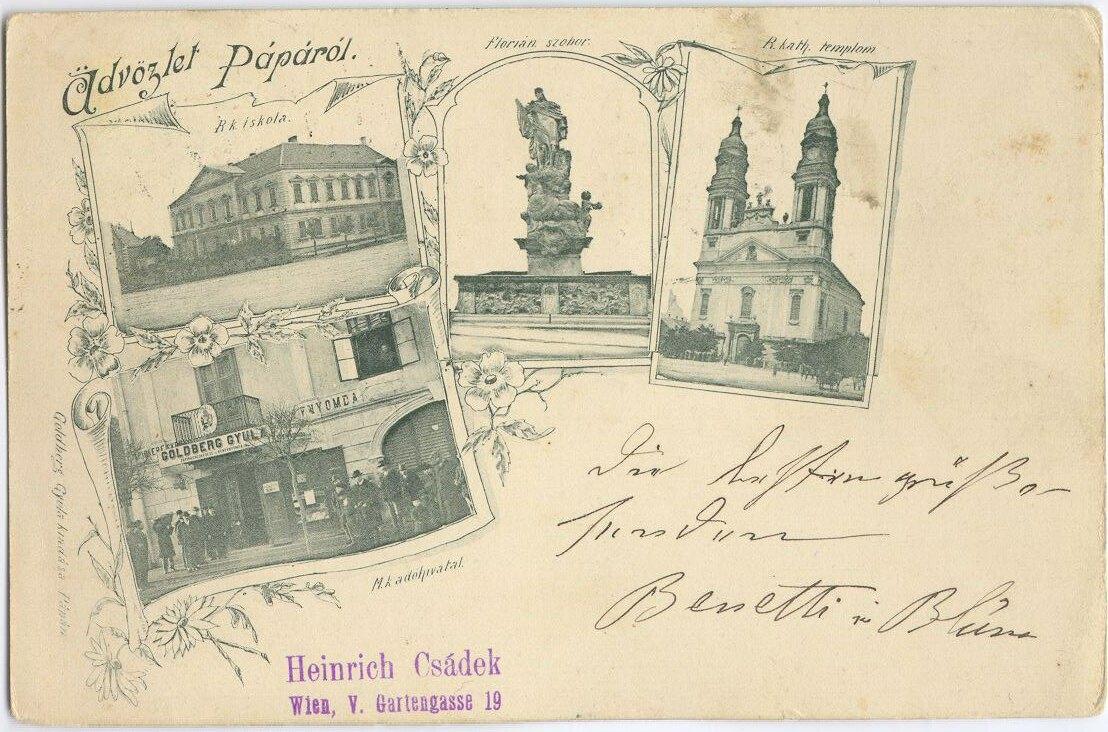 Üdvözlet Pápáról.
R. k. iskola.
Flórián szobor.
R. kath. templom
GOLDBERG GYUL
NYOMDA
M. k. adóhivatal.
Goldberg Gyula kiadása Pápán
Die besten Grüße
senden
Benetti u Blum
Heinrich Csádek
Wien, V. Gartengasse 19